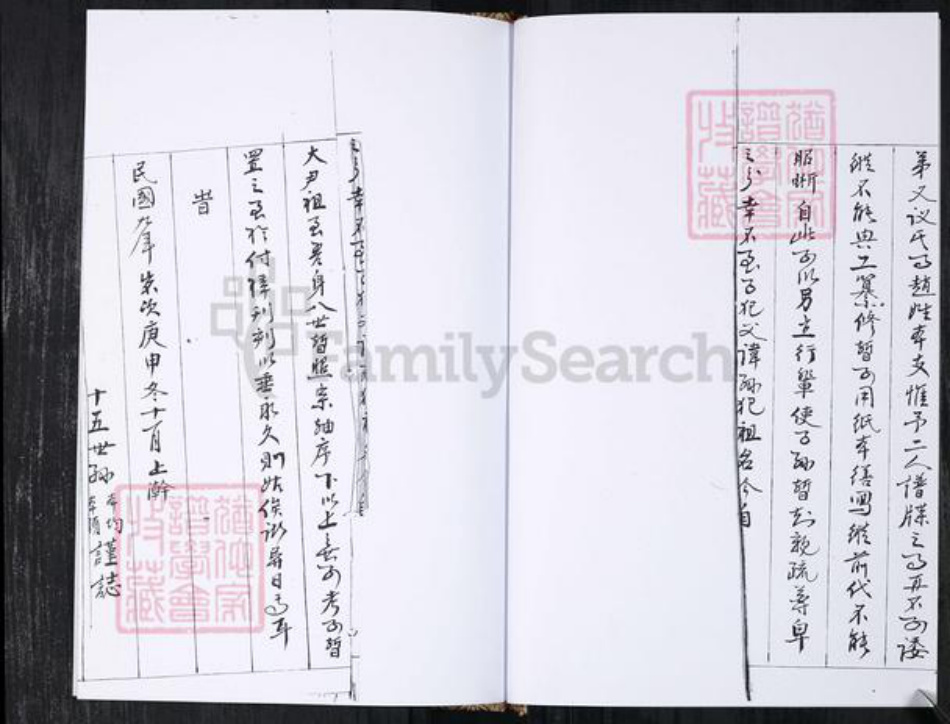 弟又议氏之趙姓本支惟予二人譜牒之事再不可諉
縱不能興工纂修暫可用紙本繕寫縱前代不能
昭晰自此可以另立行輩使子孫暫知親疏尊卑
之分幸不至子犯父諱孫犯祖名今自
大尹祖至吾身八世暫照宗軸序下以上無可考可暫
置之至於付梓刊刻以垂永久則姑俟諸异日云耳
昔
民國九年歲次庚申冬十一月上澣
十五世孫 謹誌
FamilySearch
譜學會
收藏